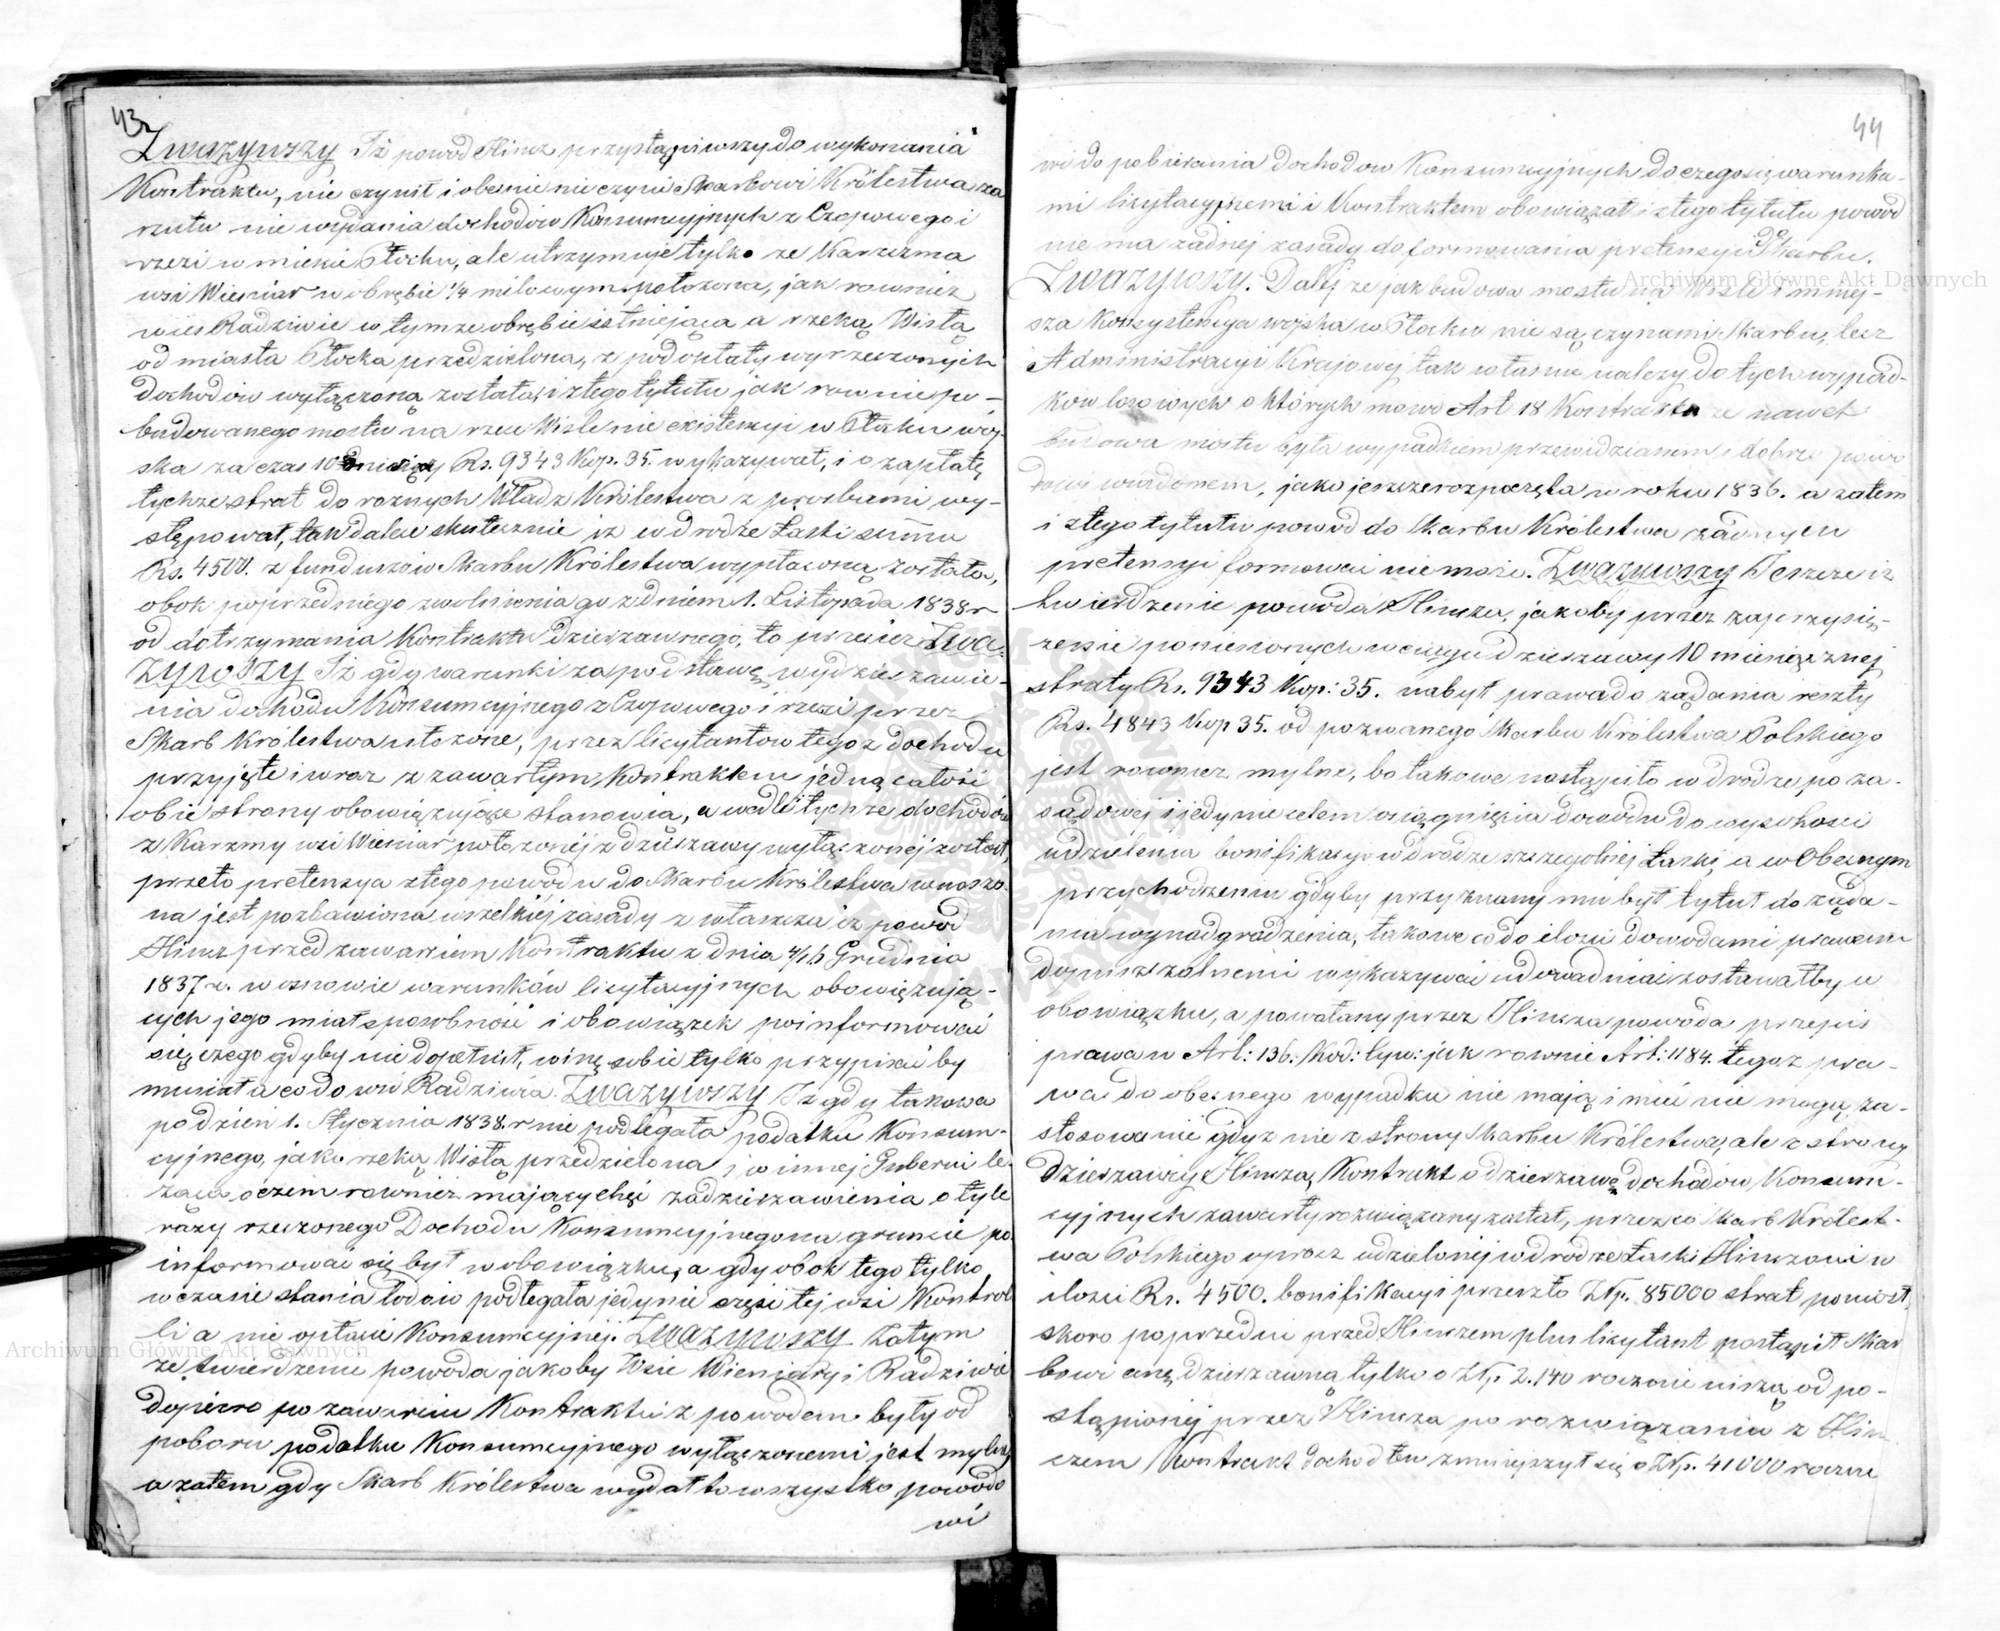 43
Zważywszy Iż powod Hincz przystąpiwszy do wykonania
Kontraktu, nie czynił i obecnie nie czyni Skarbowi Królestwa za
rzutu nie wydania dochodów Konsumcyjnych z Czopowego i
rzezi w mieście Płocku, ale utrzymuje tylko ze Karczma
wsi Wieniar w obrębie 1/4 milowym położona, jak rownież
wieś Radziwie w tymze obrębie istniejąca a rzeką Wisłą
od miasta Płocka przedzielona, z pod opłaty wyrzeczonych
dochodów wyłączoną została, i z tego tytułu jak rownie po-
budowanego mostu na rzece Wisle nie existencyi w Płocku woj-
ska za czas 10 miesięcy Rs. 9343 Kop. 35. wykazywał, i o zapłatę
tychze strat do roznych Władz Królestwa z prośbami wy-
stępował, tak dalece skutecznie iz w drodze Łaski summa
Rs. 4500. z funduszów Skarbu Królestwa wypłaconą została,
obok poprzedniego zwolnienia go z dniem 1. Listopada 1838 r
od dotrzymania Kontraktu dzierzawnego, to przecież Zwa-
zywszy Iż gdy warunki za podstawę wydzierzawie-
nia dochodu Konsumcyjnego z Czopowego i rzezi przez
Skarb Królestwa ułozone, przez licytantow tegoz dochodu
przyjęte i wraz z zawartym Kontraktem jedną całość
obie strony obowiązujące stanowią, a wedle tychze dochodów
z Karczmy wsi Wieniar połozonej z dzierzawy wyłączonej został,
przeto pretensya z tego powodu do Skarbu Królestwa wnoszo-
na jest pozbawiona wszelkiej zasady z właszcza iz powod
Hincz przed zawarciem Kontraktu z dnia 4/16 Grudnia
1837 r. w osnowie warunków licytacyjnych obowiązują-
cych jego miał sposobność i obowiązek poinformować
się, czego gdyby nie dopełnił, winę sobie tylko przypisać by
musiał a co do wsi Radziwia. Zwazywszy Iz gdy takowa
po dzien 1. Stycznia 1838. r nie podlegała podatku Konsum-
cyjnego, jako rzeką Wisłą przedzielona i w innej Guberni le-
żąca, o czem rownież mający chęć zadzierzawienia o tyle
razy rzeczonego Dochodu Konsumcyjnego na gruncie po
informować się był w obowiązku, a gdy obok tego tylko
w czasie stania lodów podlegała jedynie części tej wsi Kontrol
li a nie opłacie Konsumcyjnej. Zwazywszy Zatym
ze twierdzenie powoda jakoby Wsie Wieniary i Radziwie
dopiero po zawarciu Kontraktu z powodem były od
poboru podatku Konsumcyjnego wyłączonemi jest mylne,
a zatem gdy Skarb Królestwa wydał to wszystko powodo
wi
44
wi do pobierania dochodow Konsumcyjnych do czego się warunka-
mi licytacyjnemi i Kontraktem obowiązał i z tego tytułu powod
nie ma zadnej zasady do formowania pretensyi do Skarbu.
Zwazywszy. Dalej ze jak budowa mostu na Wisle i mniej-
sza Konsystencya wojska w Płocku nie są czynami Skarbu, lecz
Administracyi Krajowej tak własnie nalezy do tych wypad-
kow losowych o których mowi Art 18 Kontraktu ze nawet
budowa mostu była wypadkiem przewidzianem i dobrze powo
dowi wiadomem, jako jeszcze rozpoczęta w roku 1836. a zatem
i z tego tytułu powod do Skarbu Królestwa zadnych
pretensyi formować nie może. Zwazywszy Jeszcze iz
twierdzenie powoda Hincza, jakoby przez zaprzysię-
zenie poniesionych w ciągu dzierzawy 10 miesięcznej
straty Rs. 9343 Kop: 35. nabył prawa do ządania reszty
Rs. 4843 Kop 35. od pozwanego Skarbu Królestwa Polskiego
jest rowniez mylne, bo takowe nastąpiło w drodze poza-
sądowej i jedynie celem osiągnięcia dowodu do wysokosci
udzielenia bonifikacyi w drodze szczegolnej Łaski, a w Obecnym
przychodzeniu gdyby przyznany mu był tytuł do ząda-
nia wynadgrodzenia, takowe co do ilosci dowodami prawem
dopuszczalnemi wykazywać i udowadniać zostawałby w
obowiązku, a powołany przez Hincza powoda przepis
prawa w Art: 136. Kod: Cyw: jak rownie Art: 1184. tegoz pra-
wa do obecnego wypadku nie mają i mieć nie mogą za-
stosowanie gdyz nie z strony Skarbu Królestwa, ale z strony
dzierzawcy Hincza, Kontrakt o dzierzawę dochodów Konsum-
cyjnych zawarty rozwiązany został, przez co Skarb Królest-
wa Polskiego oprocz udzielonej w drodze Łaski Hinczowi w
ilosci Rs. 4500. bonifikacyi przeszło Złp. 85000 strat poniosł,
skoro poprzedni przed Hinczem plus licytant postąpił Skar
bowi cenę dzierzawną tylko o Złp. 2.140 rocznie nizszą od po-
stąpionej przez Hincza po rozwiązaniu z Hin
czem Kontrakt dochod ten zmniejszył się o Złp. 41000 rocznie
Archiwum Główne Akt Dawnych
Archiwum Główne Akt Dawnych